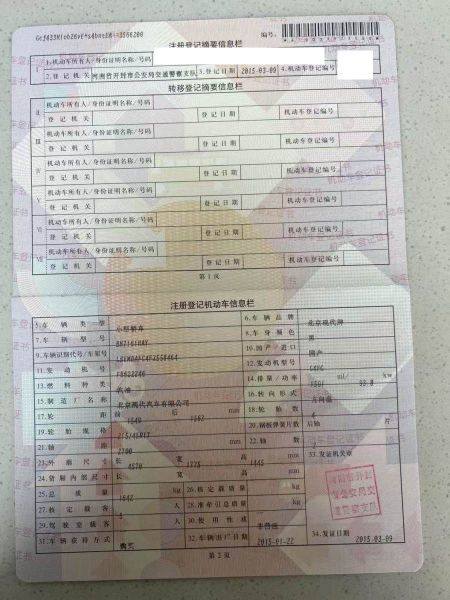 注册登记摘要信息栏
编号:
1.机动车所有人/身份证明名称/号码
2.登记机关 河南省开封市公安局交通警察支队 3.登记日期 2015-03-09 4.机动车登记编号
转移登记摘要信息栏
II 机动车所有人/身份证明名称/号码
登记机关 登记日期 机动车登记编号
III 机动车所有人/身份证明名称/号码
登记机关 登记日期 机动车登记编号
IV 机动车所有人/身份证明名称/号码
登记机关 登记日期 机动车登记编号
V 机动车所有人/身份证明名称/号码
登记机关 登记日期 机动车登记编号
VI 机动车所有人/身份证明名称/号码
登记机关 登记日期 机动车登记编号
VII 机动车所有人/身份证明名称/号码
登记机关 登记日期 机动车登记编号
第1页
注册登记机动车信息栏
5.车辆类型 小型轿车 6.车辆品牌 北京现代牌
7.车辆型号 8.车身颜色 黑
9.车辆识别代号/车架号 10.国产/进口 国产
11.发动机号 12.发动机型号 G4FG
13.燃料种类 汽油 14.排量/功率 1591 ml/ kw
15.制造厂名称 北京现代汽车有限公司 16.转向形式 方向盘
17.轮距 前 1549 后 1562 mm 18.轮胎数 4
19.轮胎规格 20.钢板弹簧片数 后轴 片
21.轴距 2700 mm 22.轴数 2
23.外廓尺寸 长 4570 宽 1775 高 1445 mm 33.发证机关章
24.货厢内部尺寸 长 宽 高 mm
25.总质量 1642 kg 26.核定载质量 kg
27.核定载客 5 人 28.准牵引总质量 kg
29.驾驶室载客 人 30.使用性质 非营运
31.车辆获得方式 购买 32.车辆出厂日期 2015-01-22 34.发证日期 2015-03-09
第2页